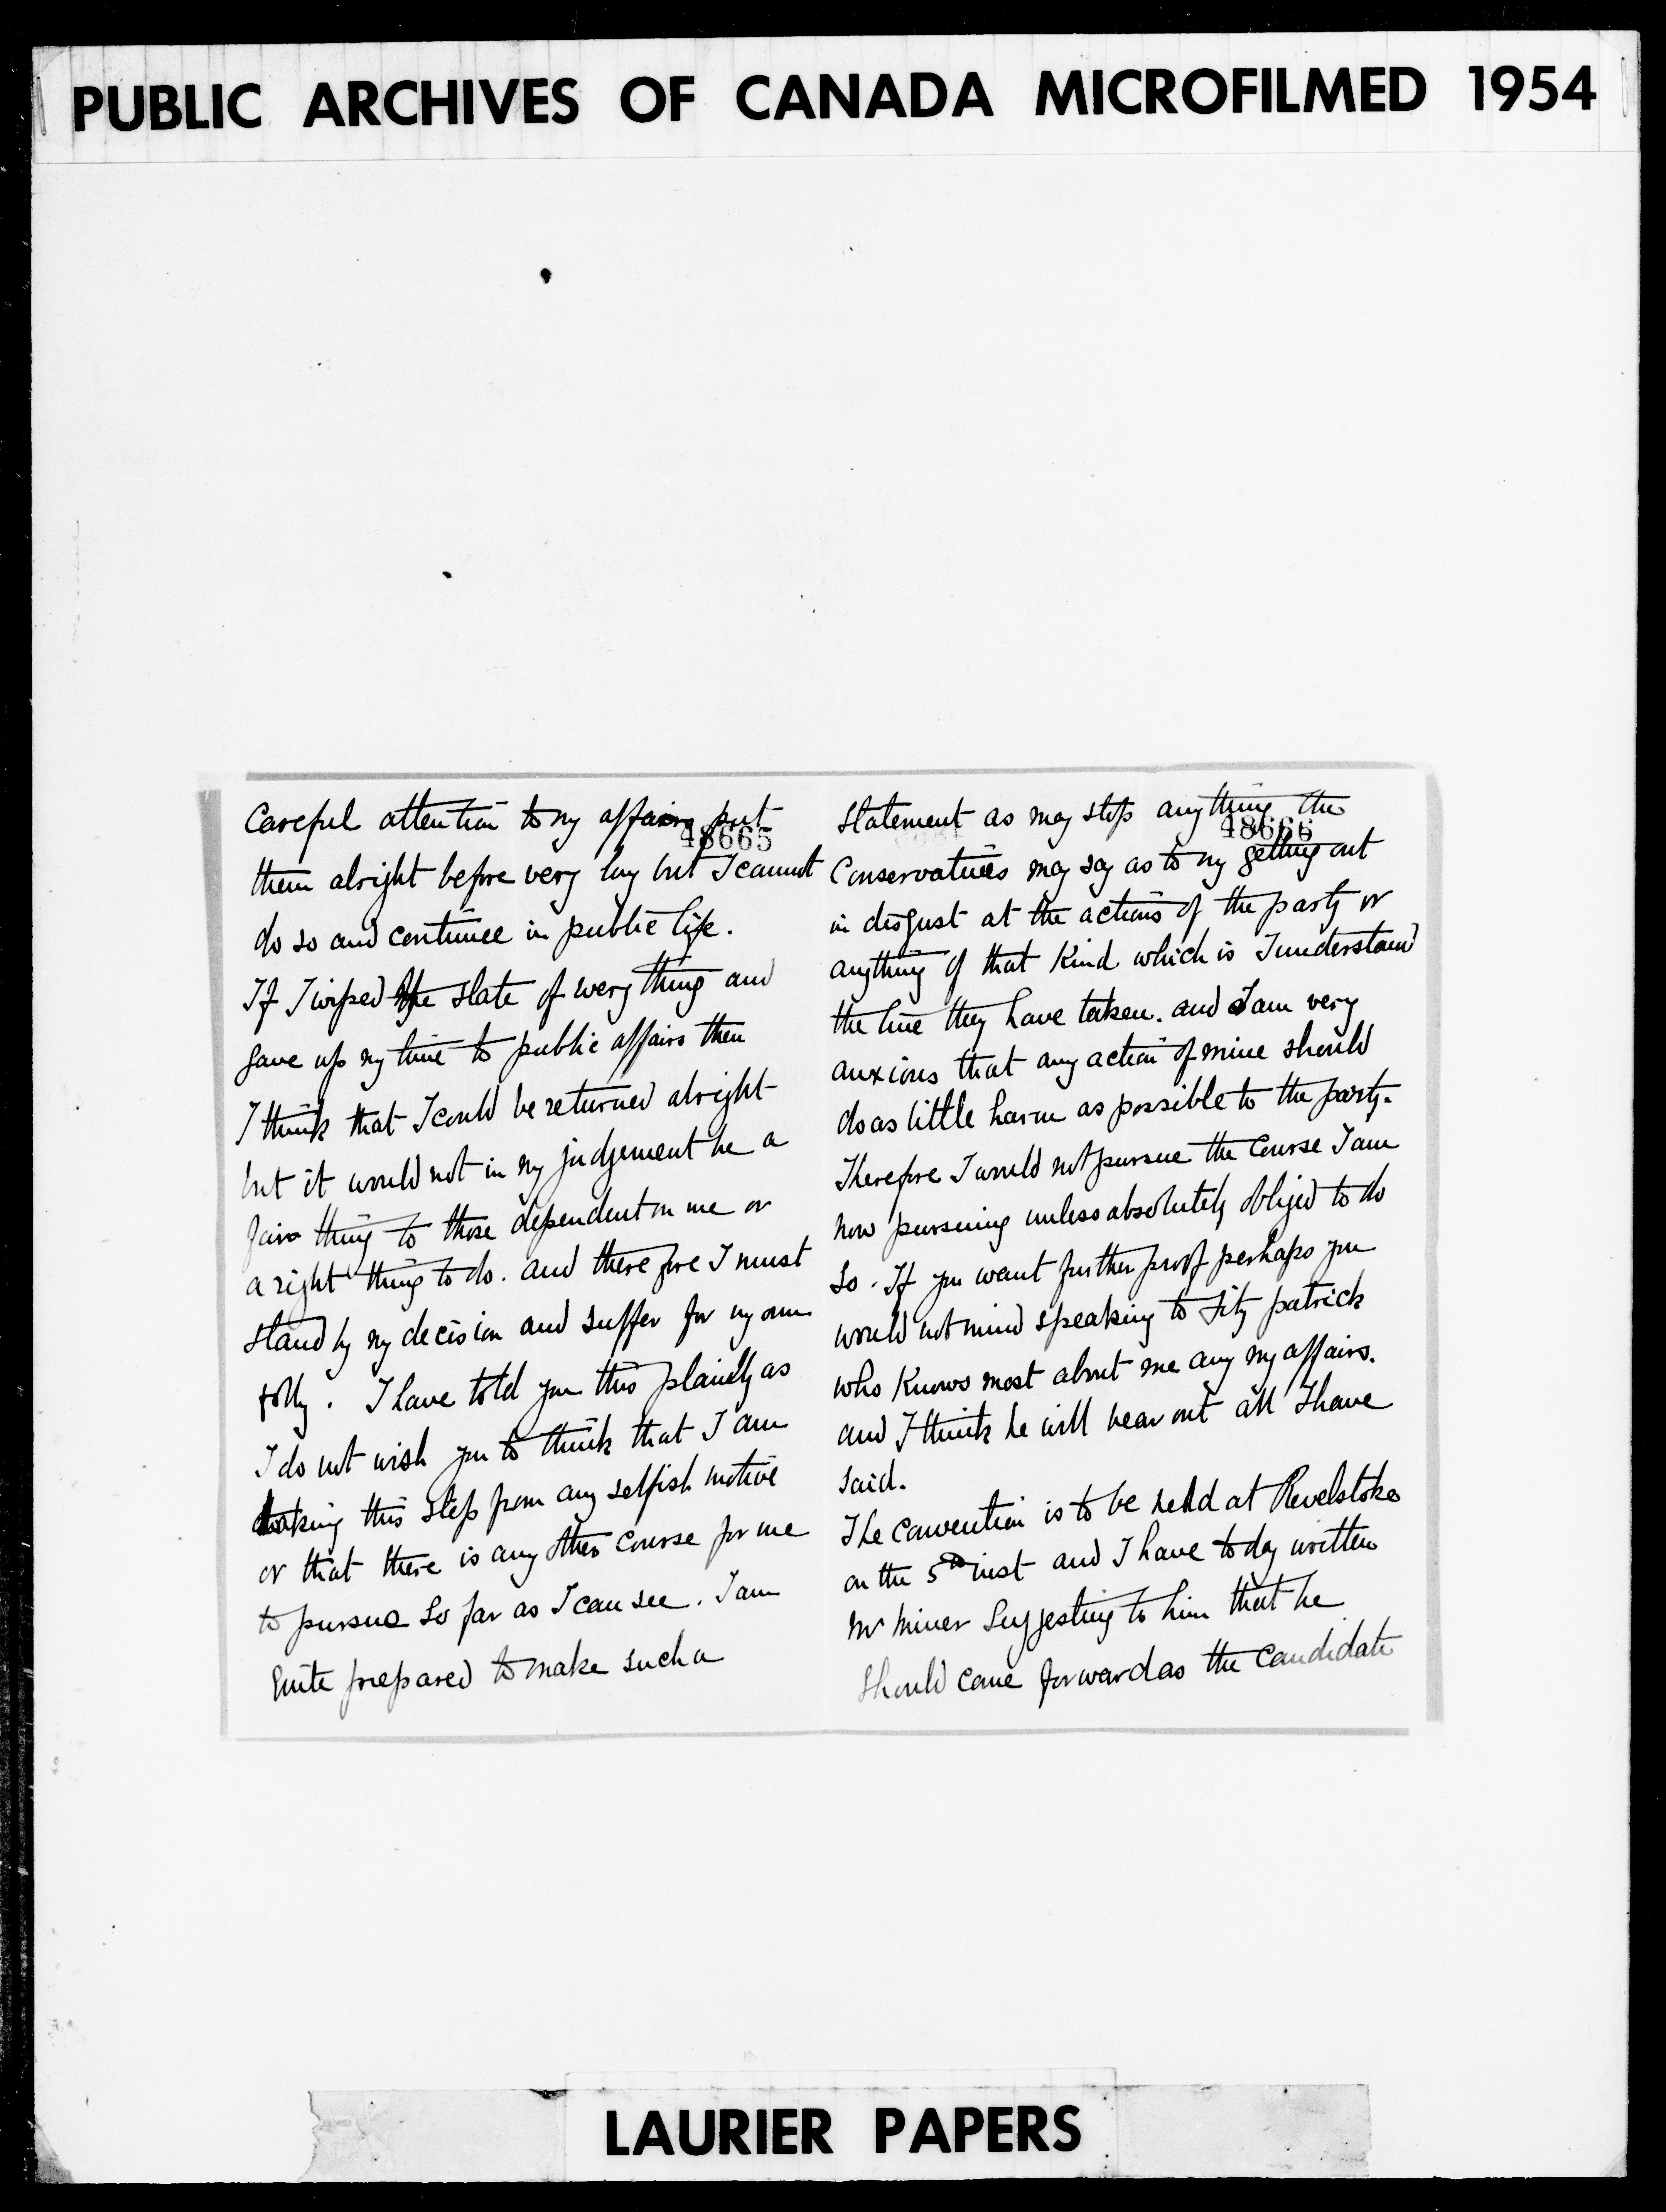 PUBLIC ARCHIVES OF CANADA MICROFILMED 1954
Careful attention to my affairs put
48665
them alright before very long but I cannot
do so and continue in public life.
If I wiped the slate of every thing and
gave up my time to public affairs then
I think that I could be returned alright
but it would not in my judgement be a
fair thing to those dependent on me or
a right thing to do. and therefore I must
stand by my decision and suffer for my own
folly. I have told you this plainly as
I do not wish you to think that I am
taking this step from any selfish motive
or that there is any other course for me
to pursue so far as I can see. I am
quite prepared to make such a
statement as may stop anything the
48666
Conservatives may say as to my getting out
in disgust at the actions of the party or
anything of that kind which is I understand
the line they have taken. and I am very
anxious that any action of mine should
do as little harm as possible to the party.
Therefore I would not pursue the course I am
now pursuing unless absolutely obliged to do
so. If you want further proof perhaps you
would not mind speaking to Fitz patrick
who knows most about me any my affairs.
and I think he will bear out all I have
said.
The convention is to be held at Revelstoke
on the 5th inst and I have to day written
Mr Miner suggesting to him that he
should come forward as the candidate
LAURIER PAPERS